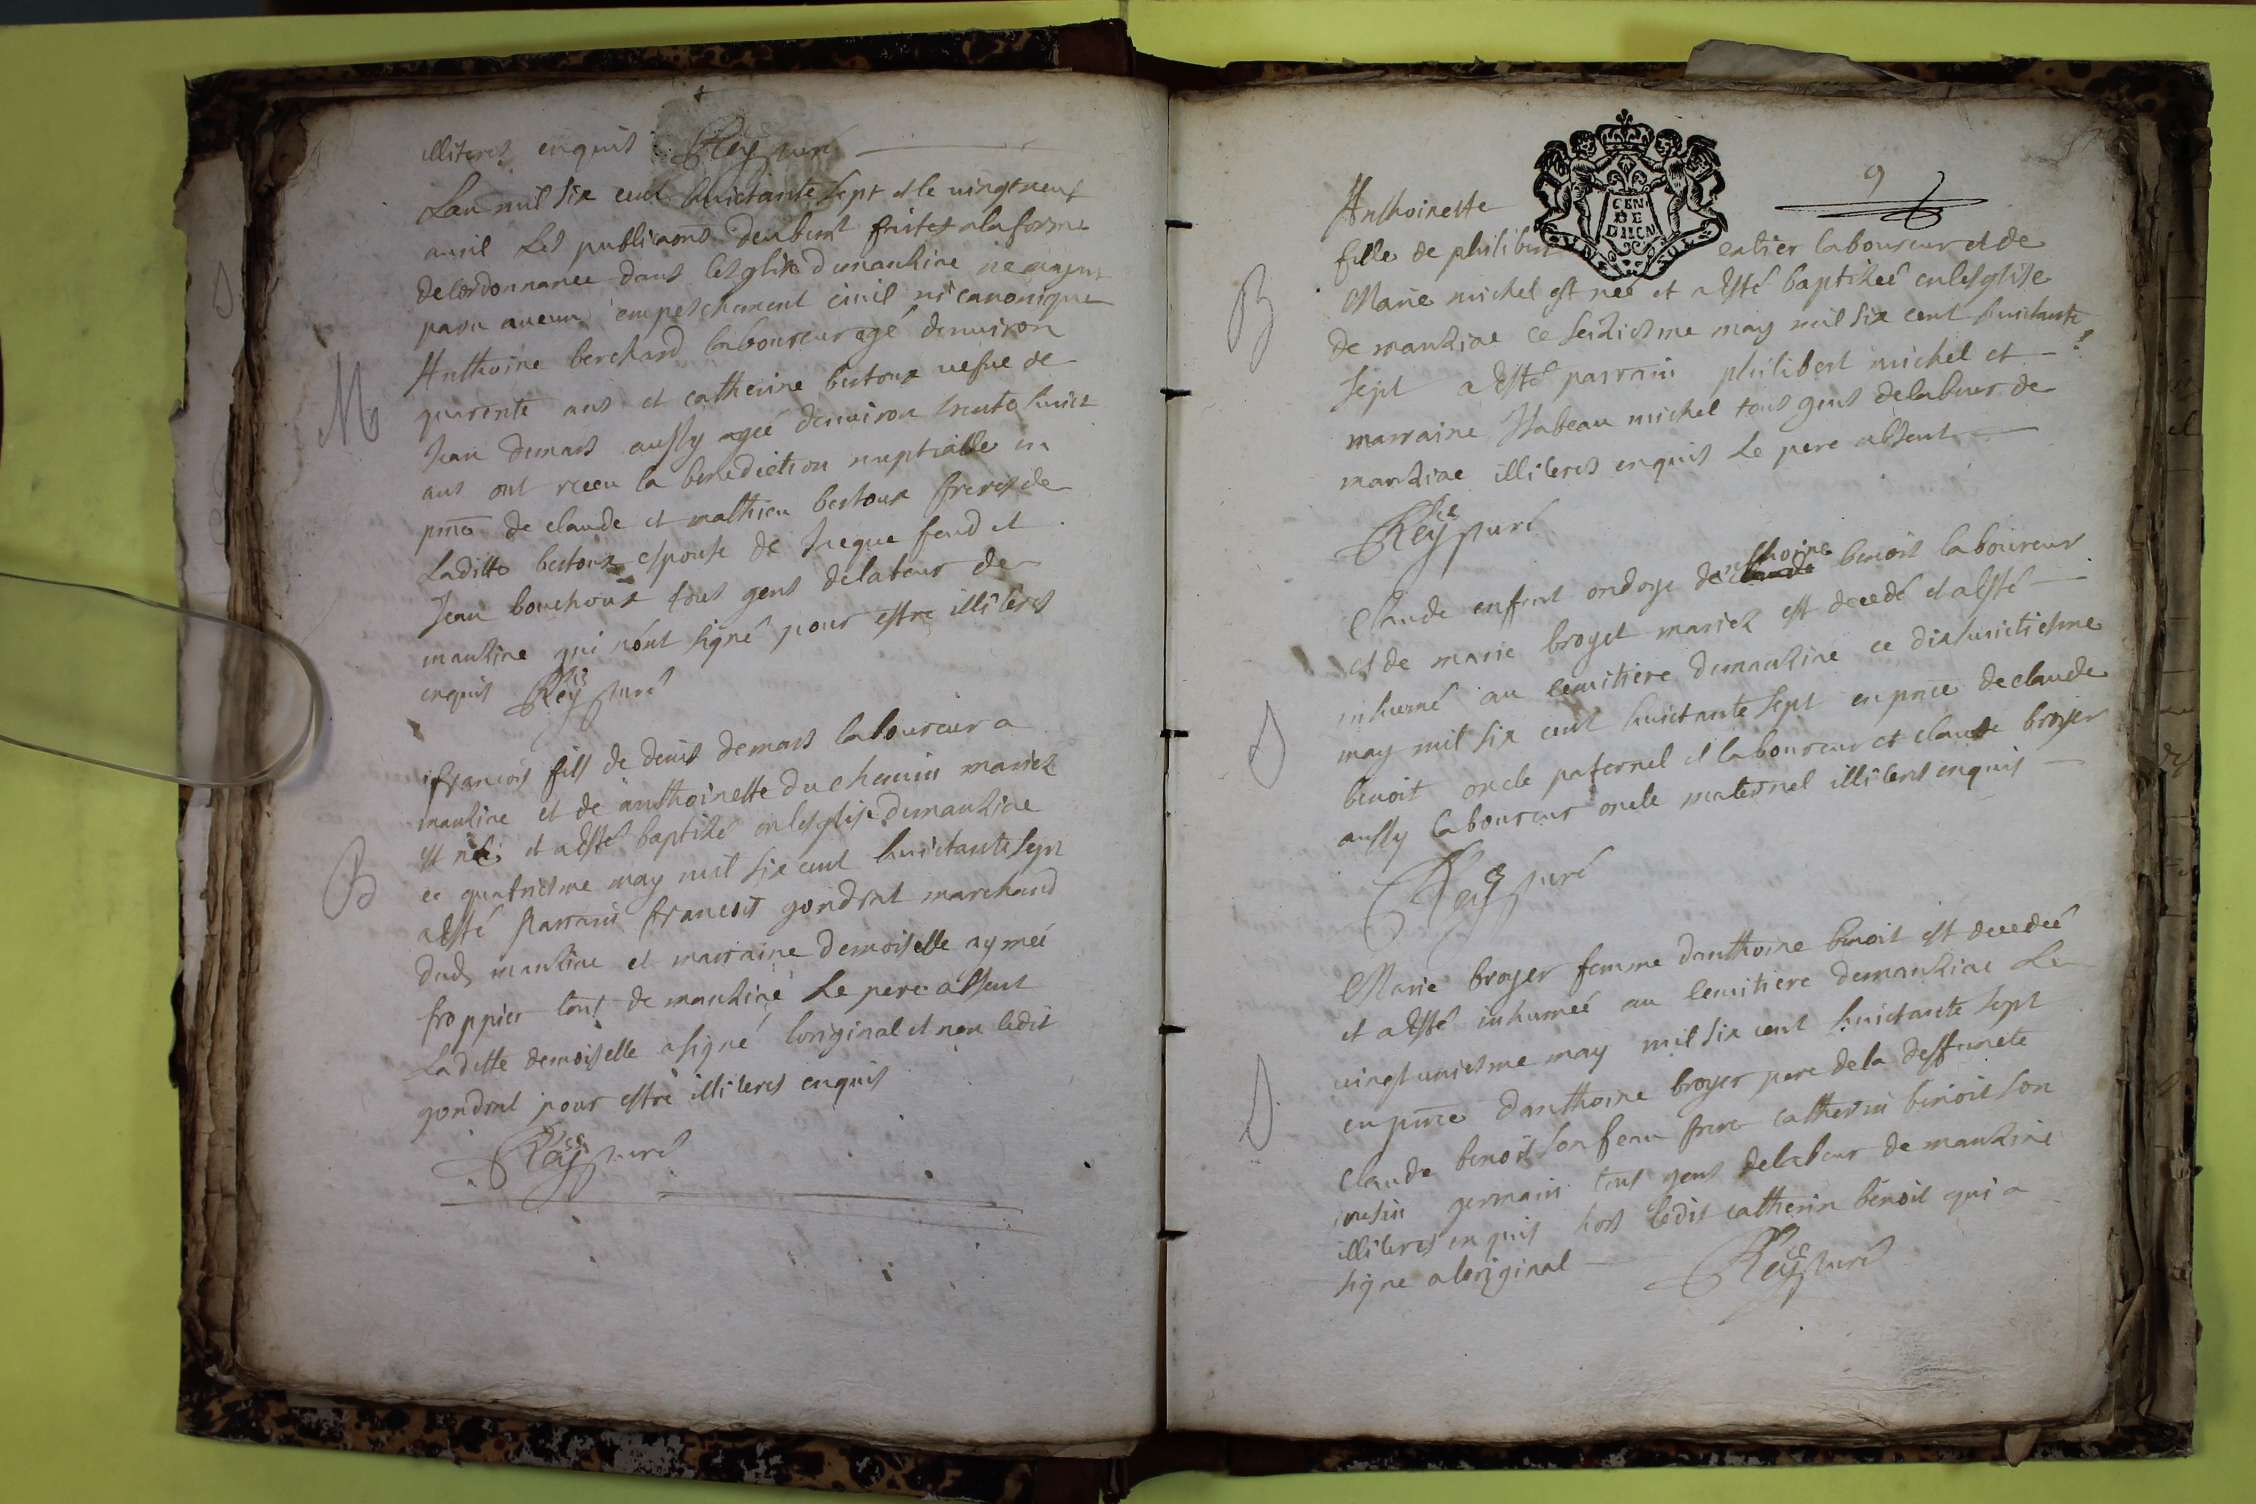 illiteres enquis Rey curé
M
Lan mil six cent huictante sept et le vingt neuf
avril les publicaons deubem̃t faites a la forme
de lordonnance dans lesglise de manziae ne
paru aucun empeschement civil ni canonique
Anthoine berchard laboureur agé denviron
quarente ans et catherine bertoux vefve de
Jean dumars aussy agée denviron trente huict
ans ont receu la benediction nuptialle en
pñce de claude et mathieu bertoux freres de
Laditte bertoux espouse de et
Jean bouchoux tous gens de labeur de
manziae qui nont signé pour estre illiteres
enquis Rey curé
B
françois fils de denis demars laboureur a
manziae et de anthoinette du chemin mariez
est né et a esté baptizé en lesglise de manziae
ce quatriesme may mil six cent huictante sept
a esté parrain françois gondrat marchand
dud manziae et marraine demoiselle aymeé
froppier tous de manziae le pere absent
Laditte demoiselle a signé loriginal et non ledit
gondrat pour estre illiteres enquis
Rey curé
9
CEN
DE
DIION
B
Anthoinette
fille de philibert laboureur et de
Marie michel est neé et a esté baptizeé en lesglise
de manziae ce seiziesme may mil six cent huictante
sept a esté parrain philibert michel et
marraine Isabeau michel tous gens de labeur de
manziae illiteres enquis le pere absent
Rey curé
D
Claude enfant ondoye de claude thoine benoit laboureur
et de marie broyet mariez est decedé et a esté
inhumé au cemitiere de manziae ce dixhuictiesme
may mil six cent huictante sept en pñce de claude
benoit oncle paternel et laboureur et claude broyer
aussy laboureur oncle maternel illiteres enquis
Rey curé
D
Marie broyer femme danthoine benoit est decedeé
et a esté inhumeé au cemitiere de manziae Le
vingt uniesme may mil six cent huictante sept
en pñce danthoine broyer pere de la deffuncte
Claude benoit son beau frere catherin benoit son
cousin germain tous gens de labeur de manziae
illiteres enquis hors ledit catherin benoit qui a
signe a loriginal Rey curé